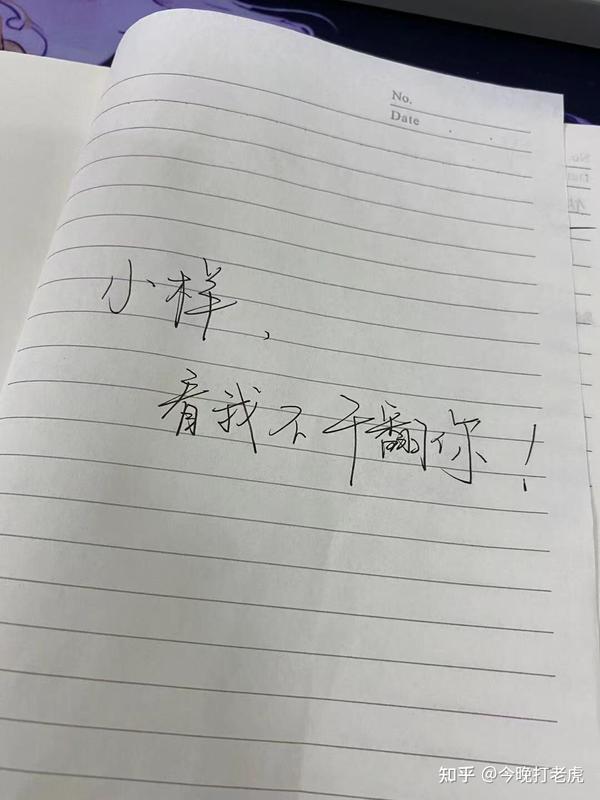 No.
Date
小样,
看我不干翻你!
知乎 @今晚打老虎